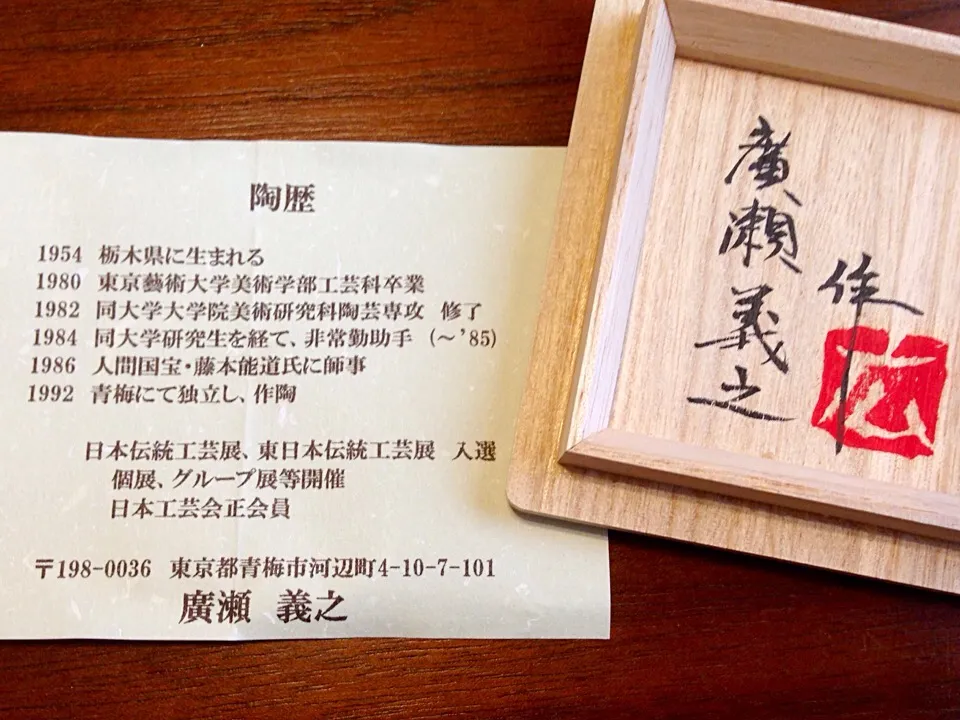 陶歴
1954 栃木県に生まれる
1980 東京藝術大学美術学部工芸科卒業
1982 同大学大学院美術研究科陶芸専攻 修了
1984 同大学研究生を経て、非常勤助手 (〜'85)
1986 人間国宝・藤本能道氏に師事
1992 青梅にて独立し、作陶
日本伝統工芸展、東日本伝統工芸展 入選
個展、グループ展等開催
日本工芸会正会員
〒198-0036 東京都青梅市河辺町4-10-7-101
廣瀬 義之
廣瀬義之
作